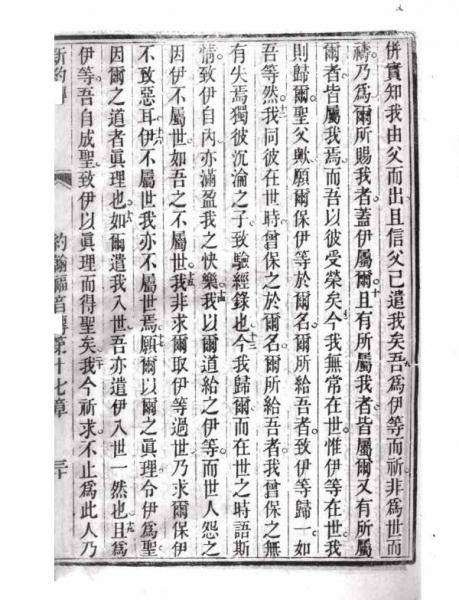 併實知我由父而出且信父已遣我矣吾爲伊等而祈非爲世而
禱乃爲爾所賜我者蓋伊屬爾且有所屬我者皆屬爾又有所屬
爾者皆屬我焉而吾以彼受榮矣今我無常在世惟伊等在世我
則歸爾聖父歟願爾保伊等於爾名爾所給吾者致伊等歸一如
吾等然我同彼在世時曾保之於爾名爾所給吾者我曾保之無
有失焉獨彼沉淪之子致驗經錄也今我歸爾而在世之時語斯
情致伊自內亦滿盈我之快樂我以爾道給之伊等而世人怨之
因伊不屬世如吾之不屬世我非求爾取伊等過世乃求爾保伊
不致惡耳伊不屬世我亦不屬世焉願爾以爾之眞理令伊爲聖
因爾之道者眞理也如爾遣我入世吾亦遣伊入世一然也且爲
伊等吾自成聖致伊以眞理而得聖矣我今祈求不止爲此人乃
新約 約翰福音傳第十七章